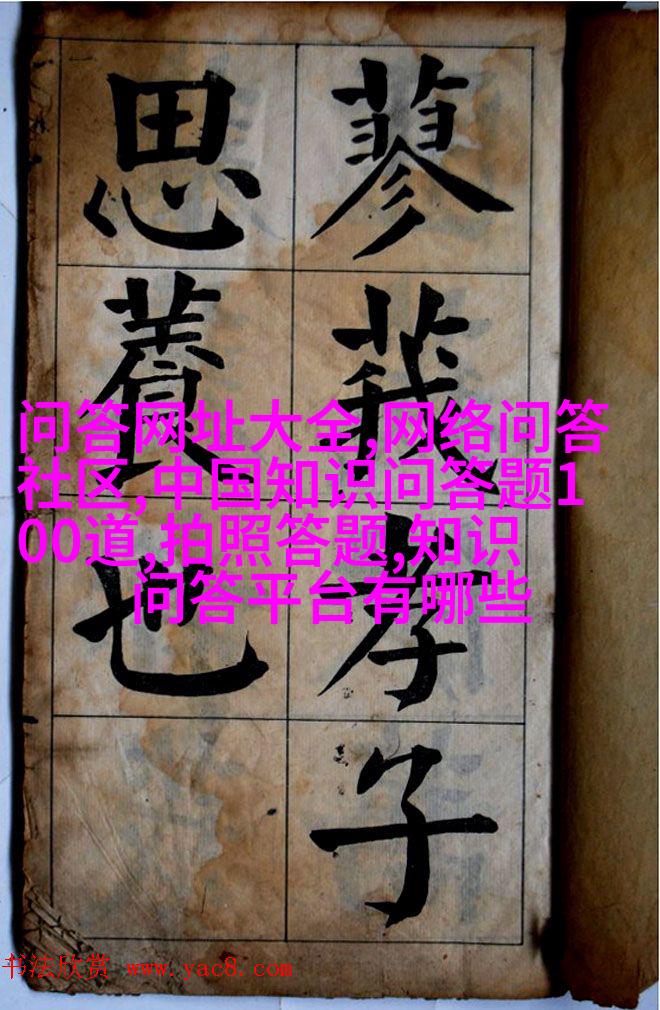 蓼莪孝子
思養也
问答网址大全,网络问答
社区,中国知识问答题1
00道,拍照答题,知识
问答平台有哪些
书法欣赏 www.yac8.com